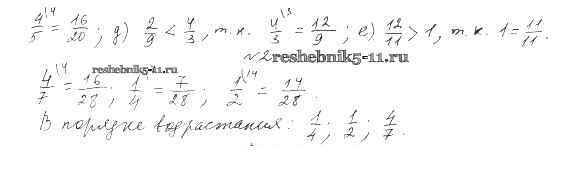 4/5^{\4} = 16/20; д) 2/9 < 4/3, т.к. 4/3^{\3} = 12/9; е) 12/11 > 1, т.к. 1 = 11/11.
№2 reshebnik5-11.ru
reshebnik5-11.ru
4/7^{\4} = 16/28; 1/4 = 7/28; 1/2^{\14} = 14/28.
В порядке возрастания: 1/4; 1/2; 4/7.